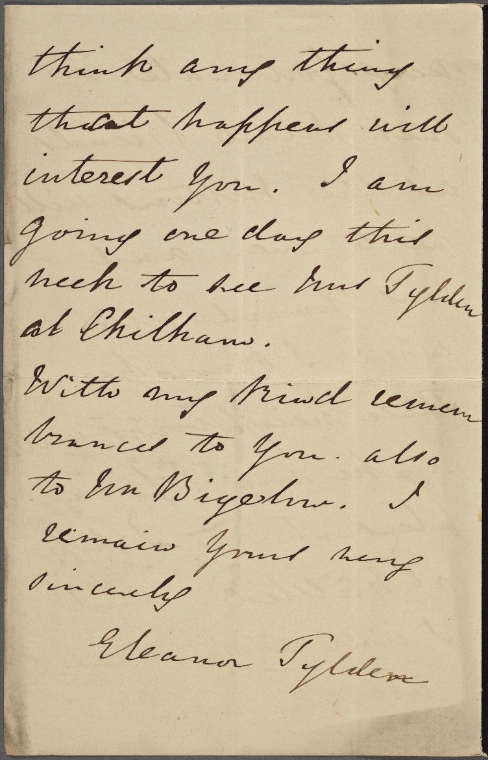 think any thing
that happens will
interest you. I am
going one day this
week to see Mrs Tylden
at Chilham.
With my kind remem
brances to you. also
to Mr Bigelow. I
remain yours very
sincerely
Eleanor Tylden